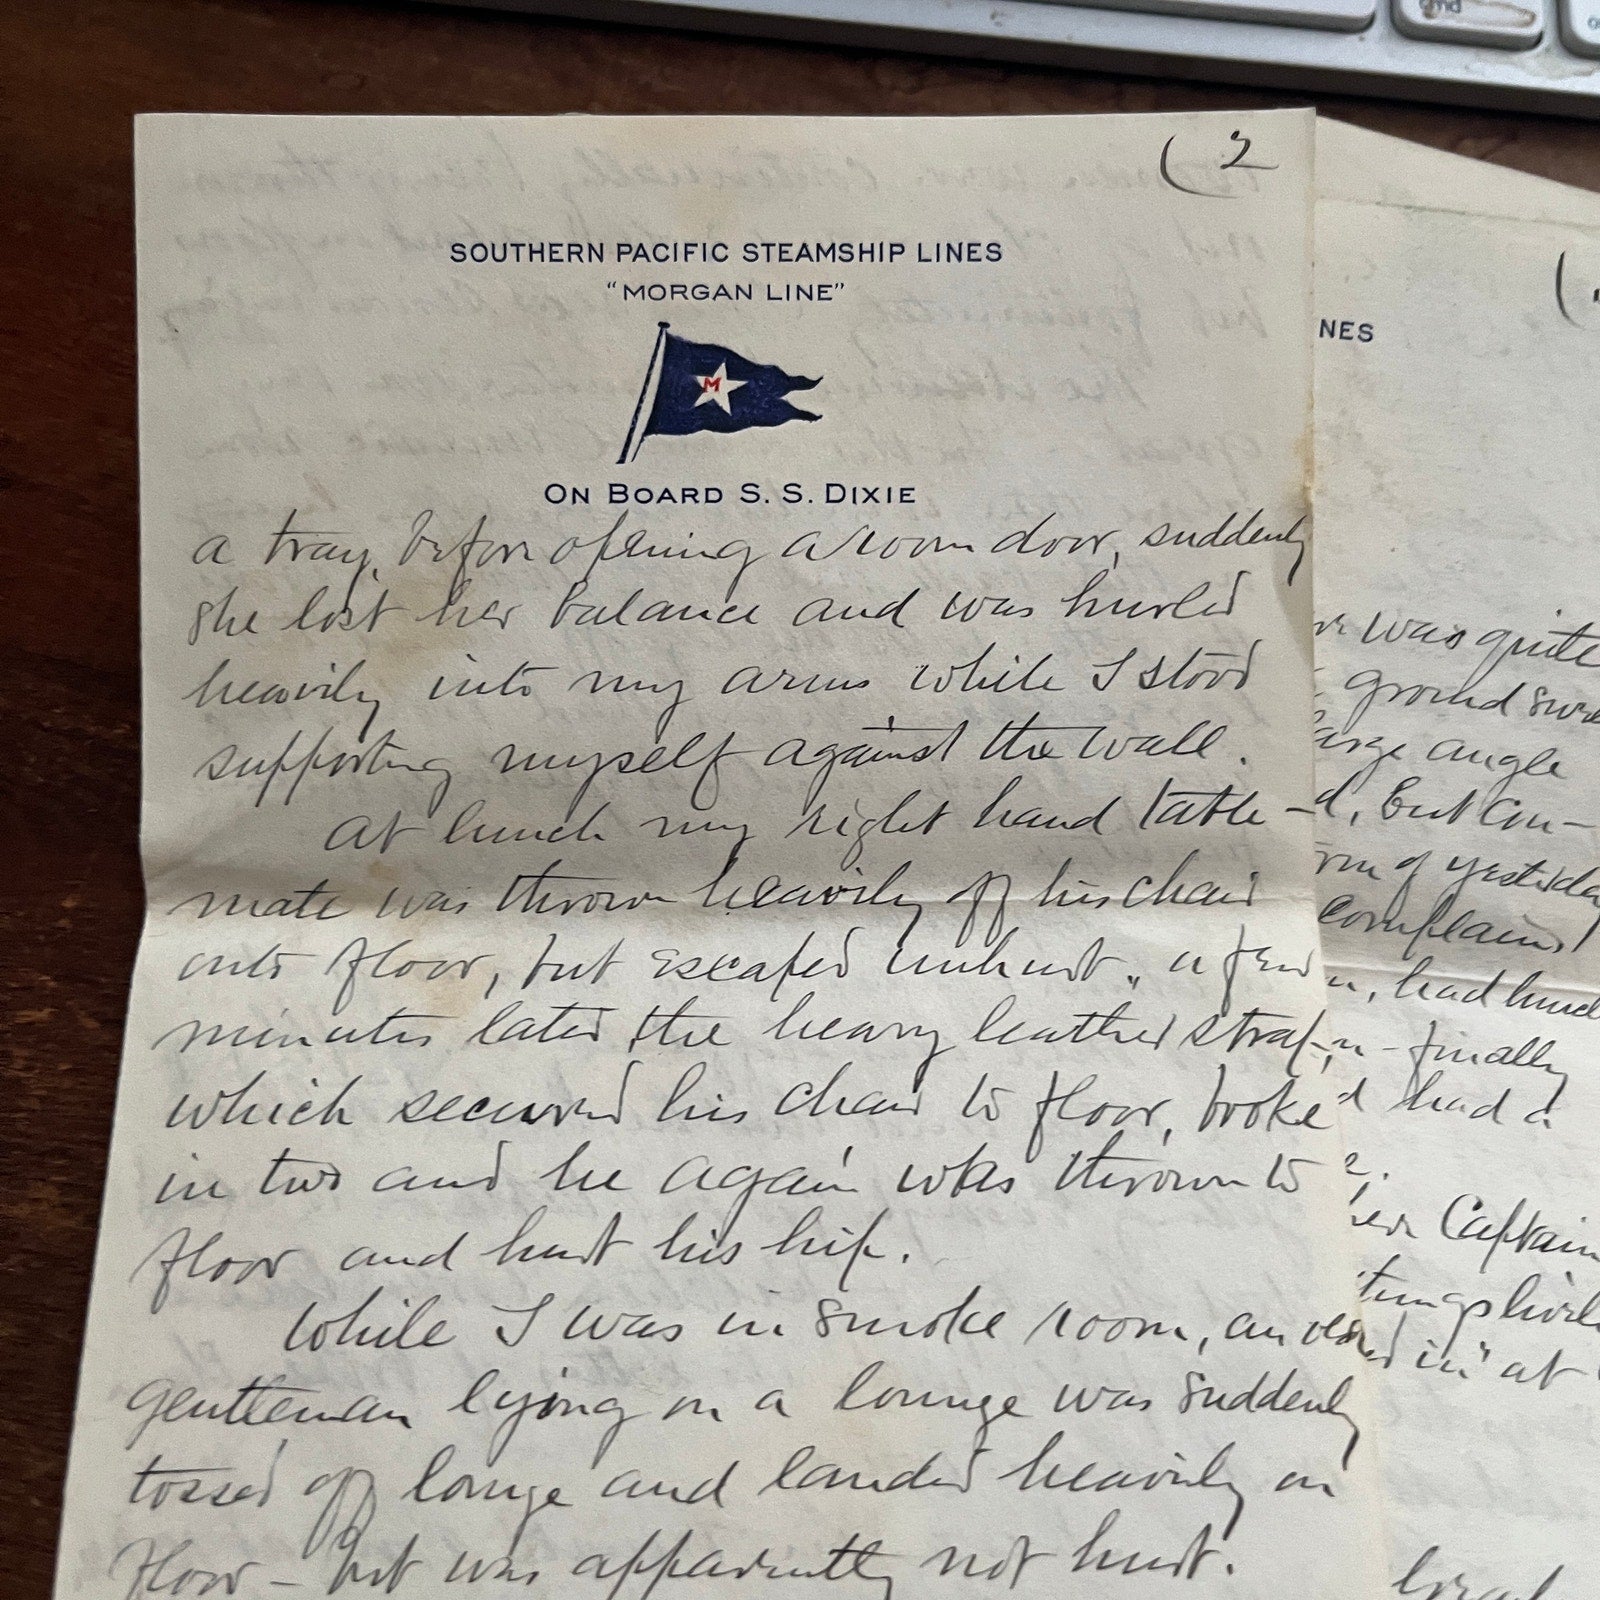 cmd
( 2
SOUTHERN PACIFIC STEAMSHIP LINES
"MORGAN LINE"
M
ON BOARD S. S. DIXIE
a tray, before opening a room door, suddenly
she lost her balance and was hurled
heavily into my arms while I stood
supporting myself against the wall.
at lunch my right hand table-
mate was thrown heavily off his chair
onto floor, but escaped unhurt. a few
minutes later the heavy leather strap
which secured his chair to floor, broke
in two and he again was thrown to
floor and hurt his hip.
While I was in smoke room, an
gentleman lying on a lounge was suddenly
tossed off lounge and landed heavily on
floor - but was apparently not hurt.
NES
was quite
ground
angle
but con-
of yesterday
complain
had
finally
had a
Captain
in" at